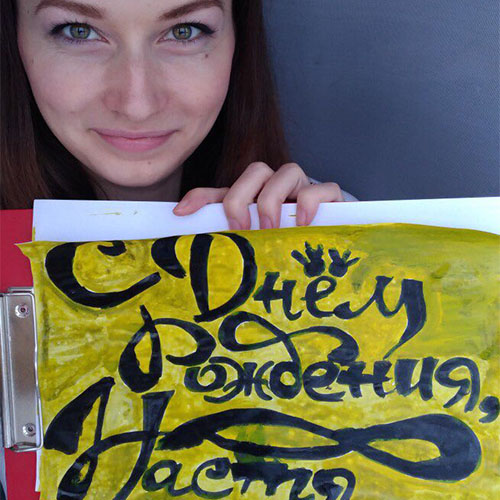 С Днём
Рождения,
Настя